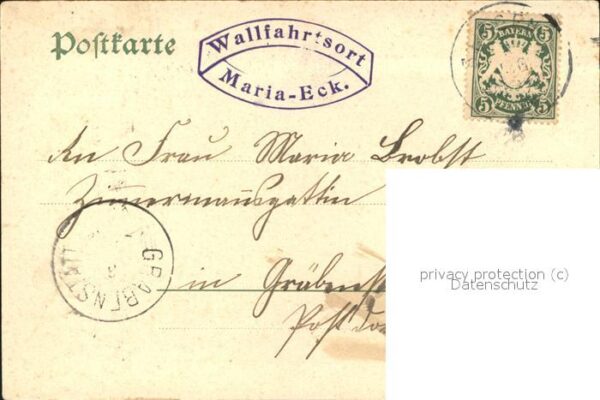 Postkarte
Wallfahrtsort
Maria-Eck.
5 BAYERN 5
5 PFENNIG 5
An Frau Maria Brobst
Zimmermannsgattin
GRABENSTÄTT
in Gräbenst
Post
privacy protection (c)
Datenschutz